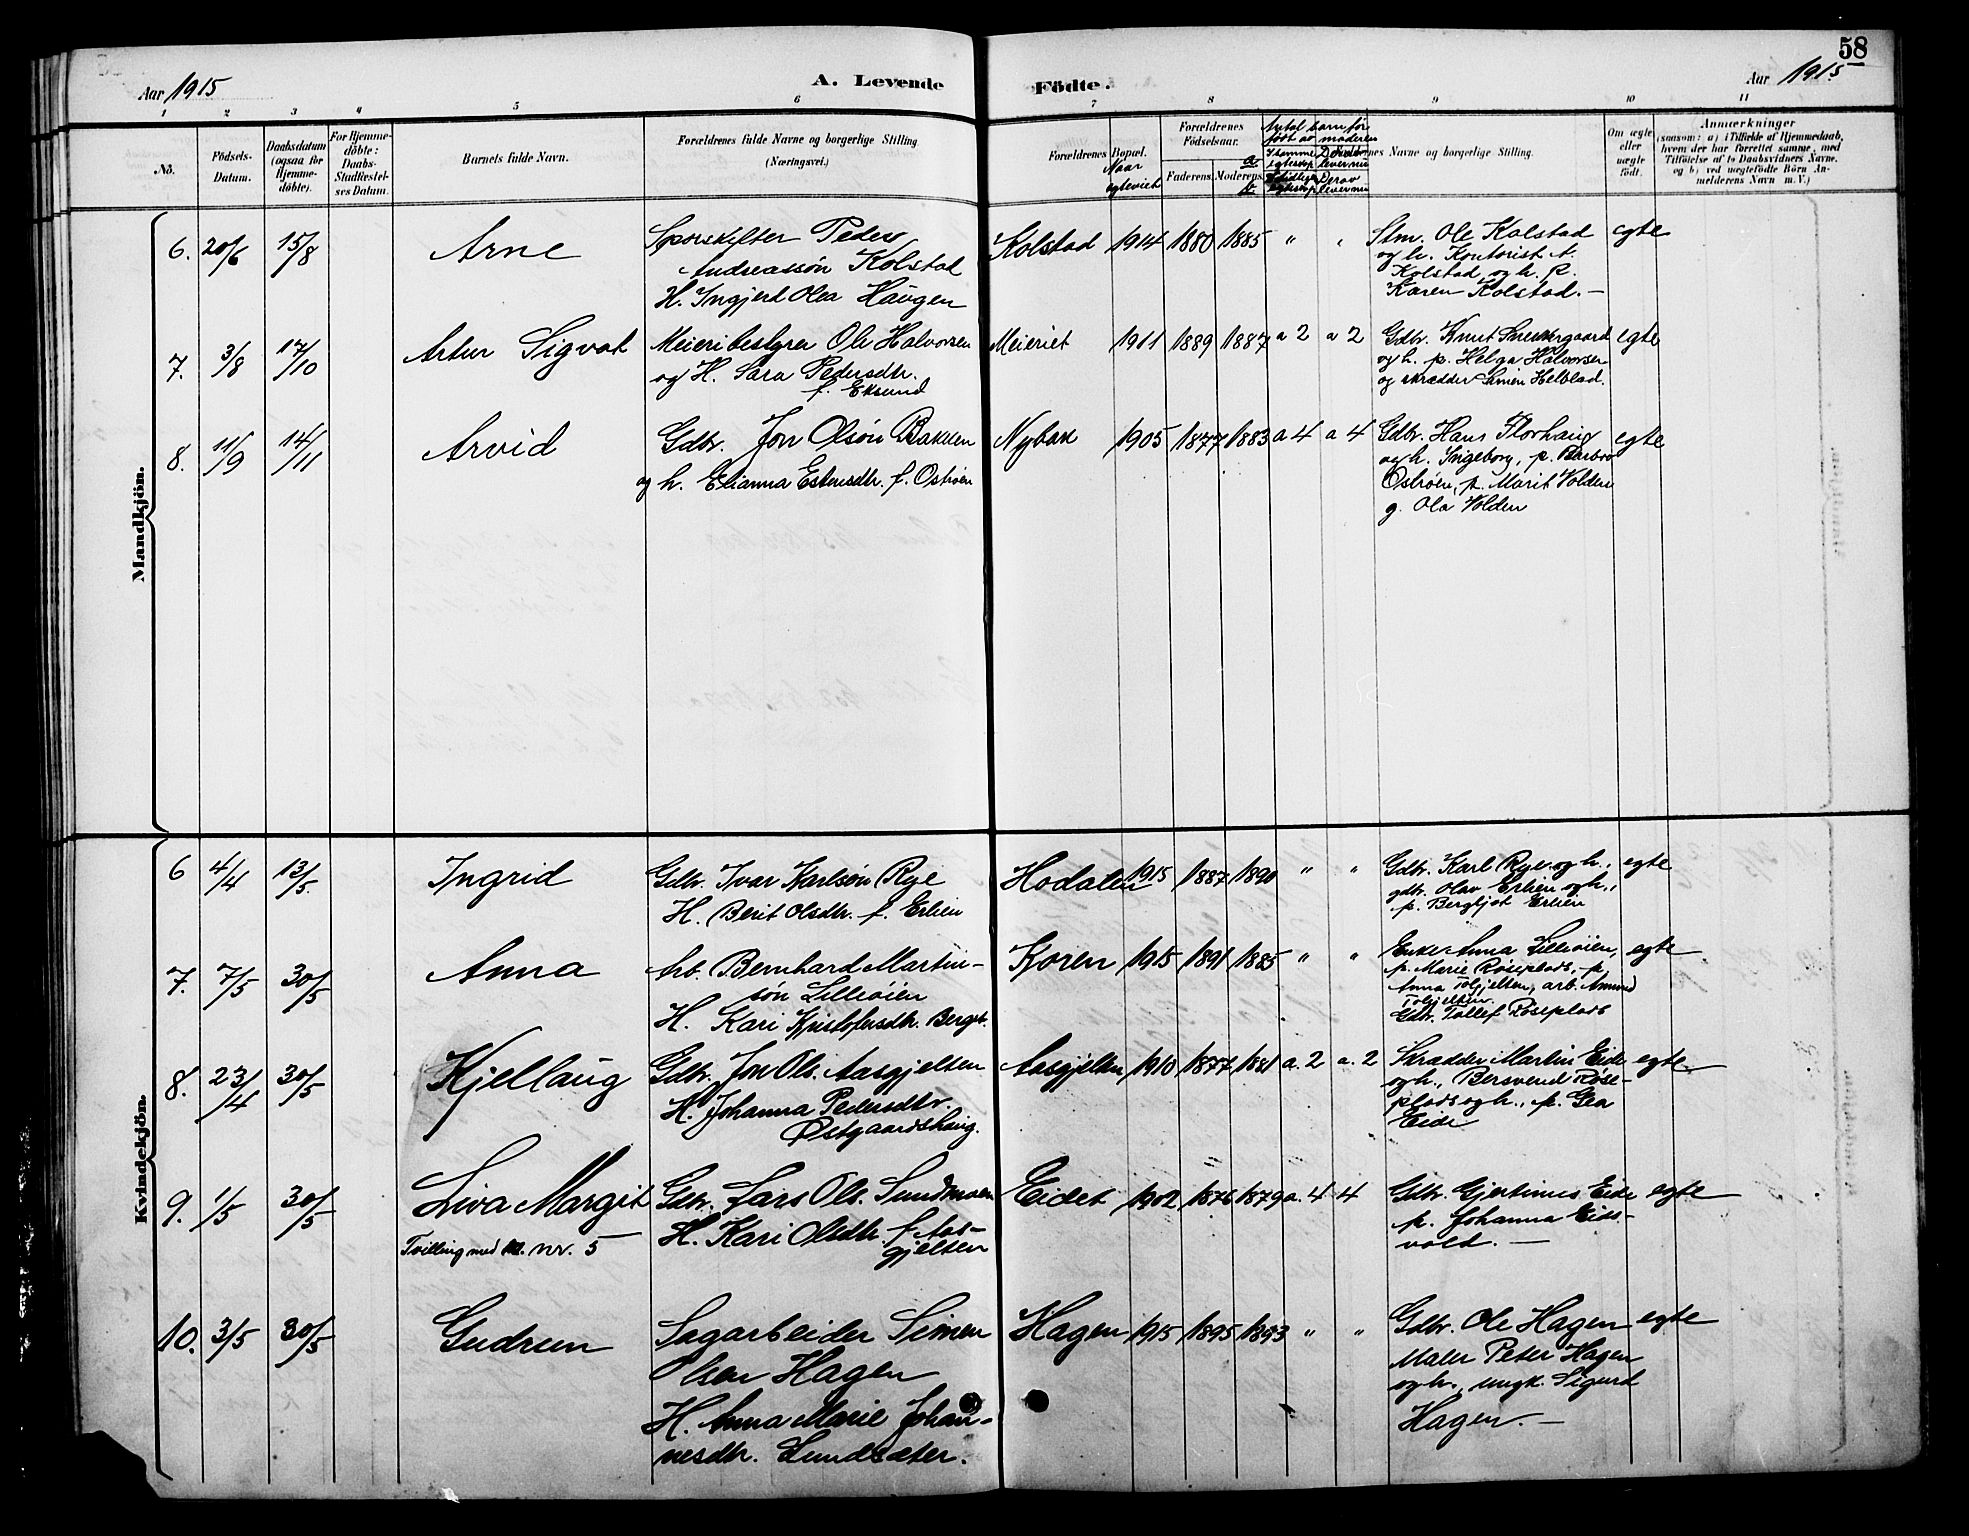 58
Aar 1915
A. Levende
Födte.
Aar 1915
1 2 3 4 5 6 7 8 9 10 11
No.
Födsels-
Datum.
Daabsdatum
(ogsaa for
Hjemme-
döbte).
For Hjemme-
döbte:
Daabs-
Stadfæstel-
ses Datum.
Barnets fulde Navn.
Forældrenes fulde Navne og borgerlige Stilling
(Næringsvei.)
Forældrenes Bopæl.
Naar
egteviet
Forældrenes
Födselsaar.
Faderens. Moderens.
Antal barn før
født av moderen
a
I samme
egteskap
Derav
levernu
b
Tidligere
egteskap
Derav
levernu
Navne og borgerlige Stilling.
Om ægte
eller
uægte
födt.
Anmærkninger
(saasom: a) i Tilfælde af Hjemmedaab,
hvem der har forrettet samme, med
Tilföielse af to Daabsvidners Navne.
og b) ved uægtefödte Börn An-
melderens Navn m. V.)
Mandkjön.
6. 20/6 15/8 Arne
Peder
Andreassøn Kolstad
H. Ingjerd Olea Haugen
Kolstad 1914 1880 1885 " "
Stm. Ole Kolstad
og h. Kontorist A.
Kolstad og h. p.
Karen Kolstad. —
egte
7. 3/8 17/10 Artur Sigvat
Meieribestyrer Ole Halvorsen
og H. Sara Pedersdtr.
f. Eksund
Meieriet 1911 1889 1887 a 2 a 2
Gdbr. Knut
og h. p. Helga Halvorsen
og skrædder Simen Helblad.
egte
8. 11/9 14/11 Arvid
Gdbr. Jon Olsøn Bakken
og h. Elianna Estensdtr. f. Østrøen
Nybak 1905 1877 1883 a 4 a 4
Gdbr. Hans Florhaug
og h. Ingeborg, p. Barbro
Østrøen, p. Marit Volden
g. Ola Volden
egte
Kvindekjön.
6 4/4 13/5 Ingrid
Gdbr. Ivar Karlsøn Rye
H. Berit Olsdtr. f. Erlien
Hodalen 1915 1887 1890 " "
Gdbr. Karl Rye og h.,
gdbr. Olav Erlien og h.,
p. Bergljot Erlien
egte
7. 7/5 30/5 Anna
Arb. Bernhard Martin-
søn Lilleøien
H. Kari Kristofersdtr. Berget.
Koren 1915 1891 1885 " "
Enke Anna Lilleøien,
p. Marie Røseplads, p.
Anna Tolgjelten, arb. Amund
Tolgjelten.
Gdbr. Tollef Røseplads
egte
8. 23/4 30/5 Kjellaug
Gdbr. Jon Ols. Aasgjelten
H. Johanna Pedersdtr.
Østgaardshaug.
Aasgjelten 1910 1877 1881 a. 2 a. 2
Skrædder Martin Eide
og h., Bersvend Røse-
plads og h., p. Gea
Eide
egte
9. 1/5 30/5 Liva Margit
Tvilling med nr. 5
Gdbr. Lars Ols. Sundmoen
H. Kari Olsdtr. f. Aas-
gjelten
Eidet 1902 1876 1879 a. 4 4
Gdbr. Gjertinius Eide
p. Johanna Eids-
vold. —
egte
10. 3/5 30/5 Gudrun
Sagarbeider Simen
Olsen Hagen
H. Anna Marie Johan-
nesdtr. Sundsæter.
Hagen 1915 1895 1893 " "
Gdbr. Ole Hagen
Maler Peter Hagen
og h., ungk. Sigurd
Hagen. —
egte